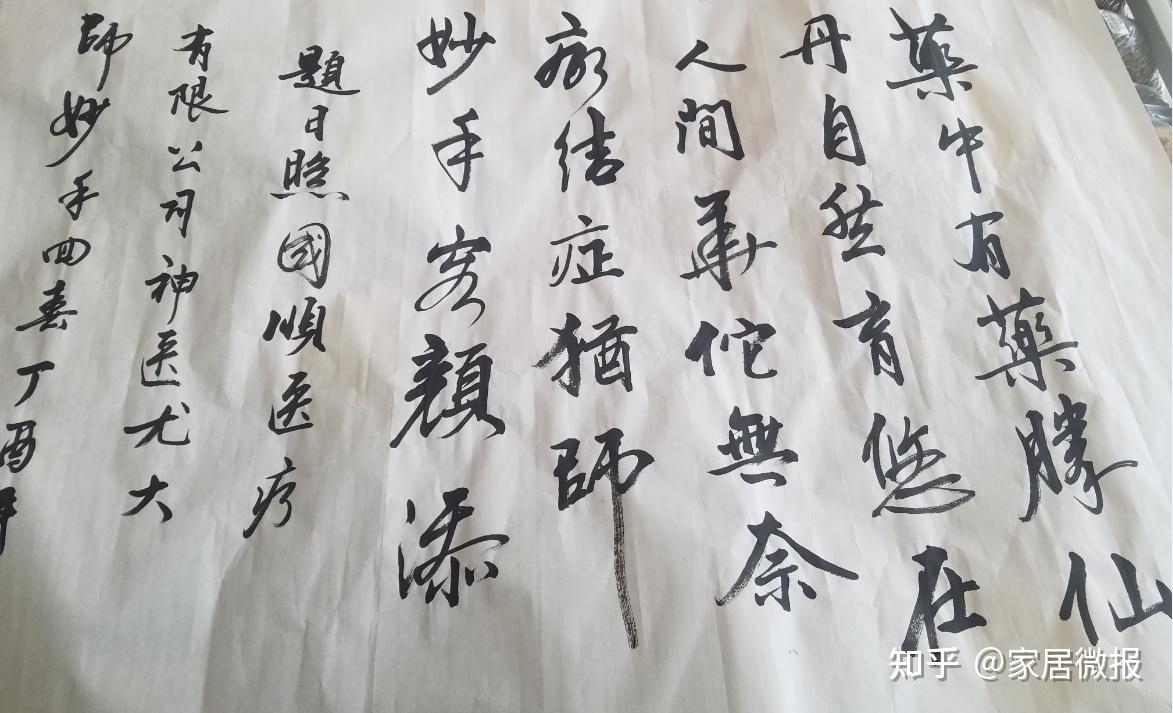 藥中有藥勝仙
丹自然育悠在
人間華佗無奈
結症猶師
妙手容顏添
題日照國順医疗
有限公司神医尤大
師妙手回春丁酉年
知乎 @家居微报